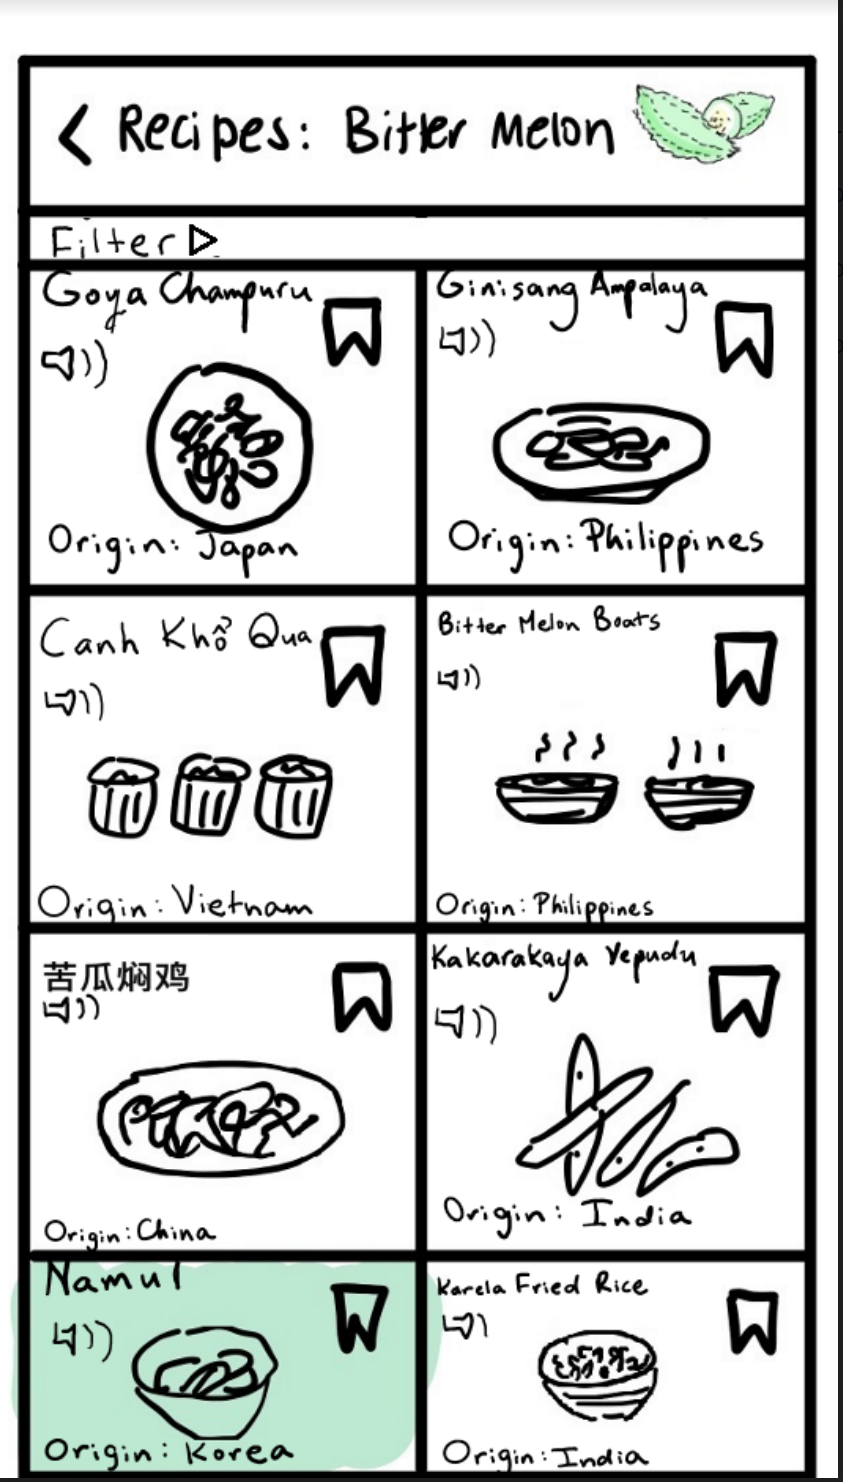 < Recipes: Bitter Melon
Filter ▷
Goya Champuru
Origin: Japan
Ginisang Ampalaya
Origin: Philippines
Canh Khổ Qua
Origin: Vietnam
Bitter Melon Boats
Origin: Philippines
苦瓜焖鸡
Origin: China
Kakarakaya Vepudu
Origin: India
Namul
Origin: Korea
Karela Fried Rice
Origin: India